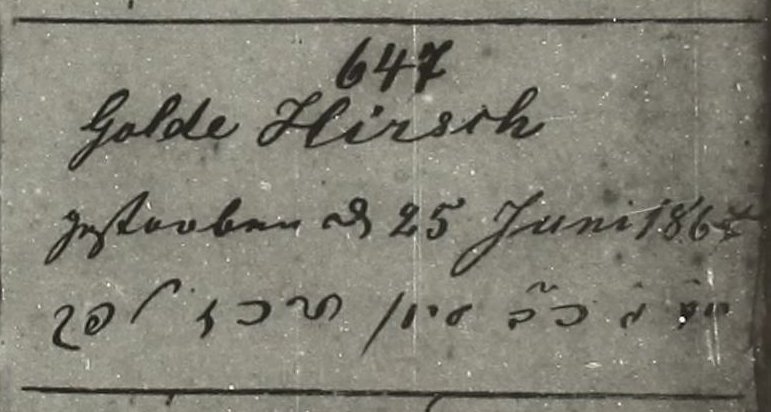 647
Golde Hirsch
gestorben d 25 Juni 1867
יום ג כ״ב סיון תרכז לפק